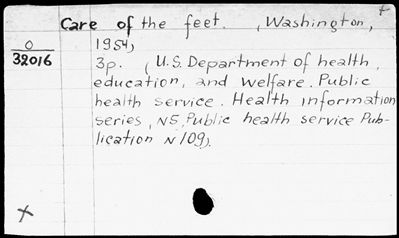 Care of the feet. (Washington,
O
32016
1954)
3p. (U.S. Department of health,
education, and welfare. Public
health service. Health information
series, N5, Public health service Pub-
lication N109).